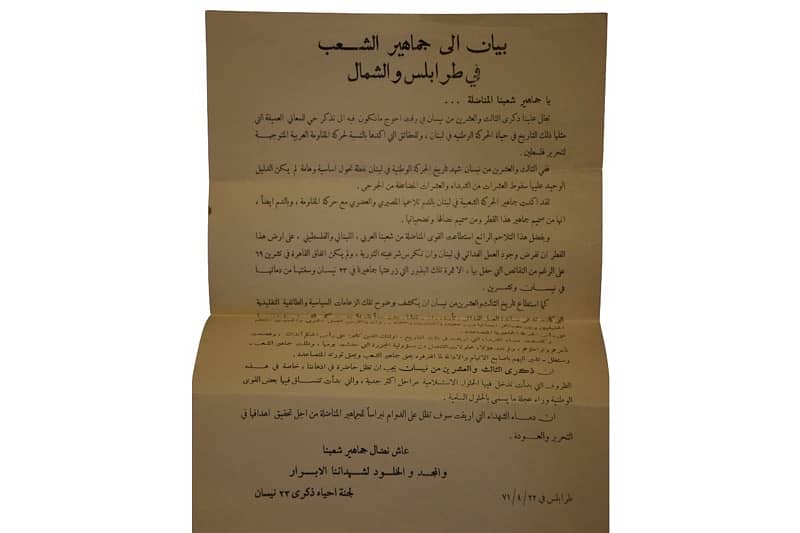 بيان الى جماهير الشعب
في طرابلس والشمال
يا جماهير شعبنا المناضلة ...
تطل علينا ذكرى الثالث والعشرين من نيسان في وقت احوج مانكون فيه الى تذكر حي للمعاني العميقة التي
مثلها ذلك التاريخ في حياة الحركة الوطنيه في لبنان ، وللحقائق التي اكدها بالنسبة لحركة المقاومة العربية المتوجهة
لتحرير فلسطين .
ففي الثالث والعشرين من نيسان شهد تاريخ الحركة الوطنية في لبنان نقطة تحول اساسية وهامة لم يكن الدليل
الوحيد عليها سقوط العشرات من الشهداء والعشرات المضاعفة من الجرحى .
لقد اكدت جماهير الحركة الشعبية في لبنان بالدم تلاحمها المصيري والعضوي مع حركة المقاومة ، وبالدم ايضاً ،
انها من صميم جماهير هذا القطر ومن صميم نضالها وتضحياتها .
وبفضل هذا التلاحم الرائع استطاعت القوى المناضلة من شعبنا العربي ، اللبناني والفلسطيني ، على ارض هذا
القطر ان تفرض وجود العمل الفدائي في لبنان وان تكرس شرعيته الثورية ، ولم يكن اتفاق القاهرة في تشرين ٦٩
على الرغم من النقائص التي حفل بها ، الا ثمرة تلك البذور التي زرعتها جماهيرنا في ٢٣ نيسان وسقتها من دمائها
في نيسان وتشرين .
كما استطاع تاريخ الثالث والعشرين من نيسان ان يكشف بوضوح تلك الزعامات السياسية والطائفية التقليدية
وستظل
ان ذكرى الثالث والعشرين من نيسان يجب ان تظل حاضرة في اذهاننا ، خاصة في هذه
الظروف التي بدأت تدخل فيها الحلول الاستسلامية مراحل اكثر جدية ، والتي بدأت تنساق فيها بعض القوى
الوطنية وراء عجلة ما يسمى بالحلول السلمية .
ان دماء الشهداء التي اريقت سوف تظل على الدوام نبراساً للجماهير المناضلة من اجل تحقيق اهدافها في
التحرير والعودة .
عاش نضال جماهير شعبنا
والمجد والخلود لشهدائنا الابرار
لجنة احياء ذكرى ٢٣ نيسان
طرابلس في ٢٢ / ٤ / ٧١